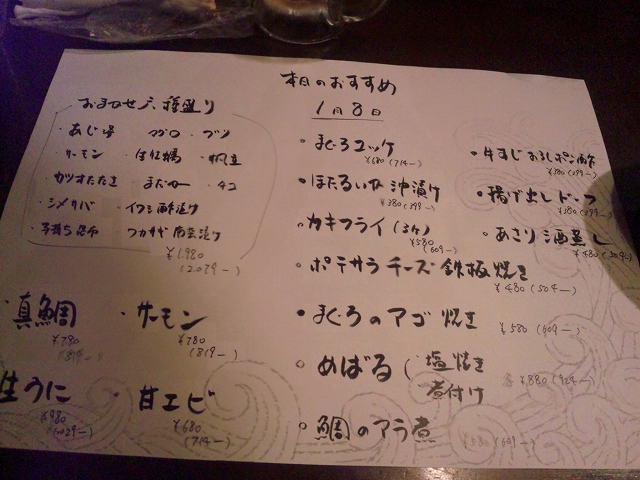 本日のおすすめ
1月8日
おまかせ六種盛り
・あじ ・マグロ ・ブリ
・サーモン ・生牡蠣 ・帆立
・カツオたたき ・まだか ・タコ
・シメサバ ・イワシ酢漬け
・子持ち昆布
¥1,980
(2079-)
・真鯛
¥780
(819-)
・サーモン
¥780
(819-)
生うに
¥980
(1029-)
・甘エビ
¥680
(714-)
・まぐろユッケ
¥680(714-)
・ほたるいか沖漬け
¥380(399-)
・カキフライ(3ケ)
¥580
(609-)
・ポテサラチーズ鉄板焼き
¥480(504-)
・まぐろのアゴ焼き ¥580(609-)
・めばる(塩焼き 煮付け ¥880(924-)
・鯛のアラ煮 ¥580(609-)
・牛すじおろしポン酢
¥380(399-)
・揚げ出しドーフ
¥380(399-)
・あさり酒蒸し
¥480(504-)